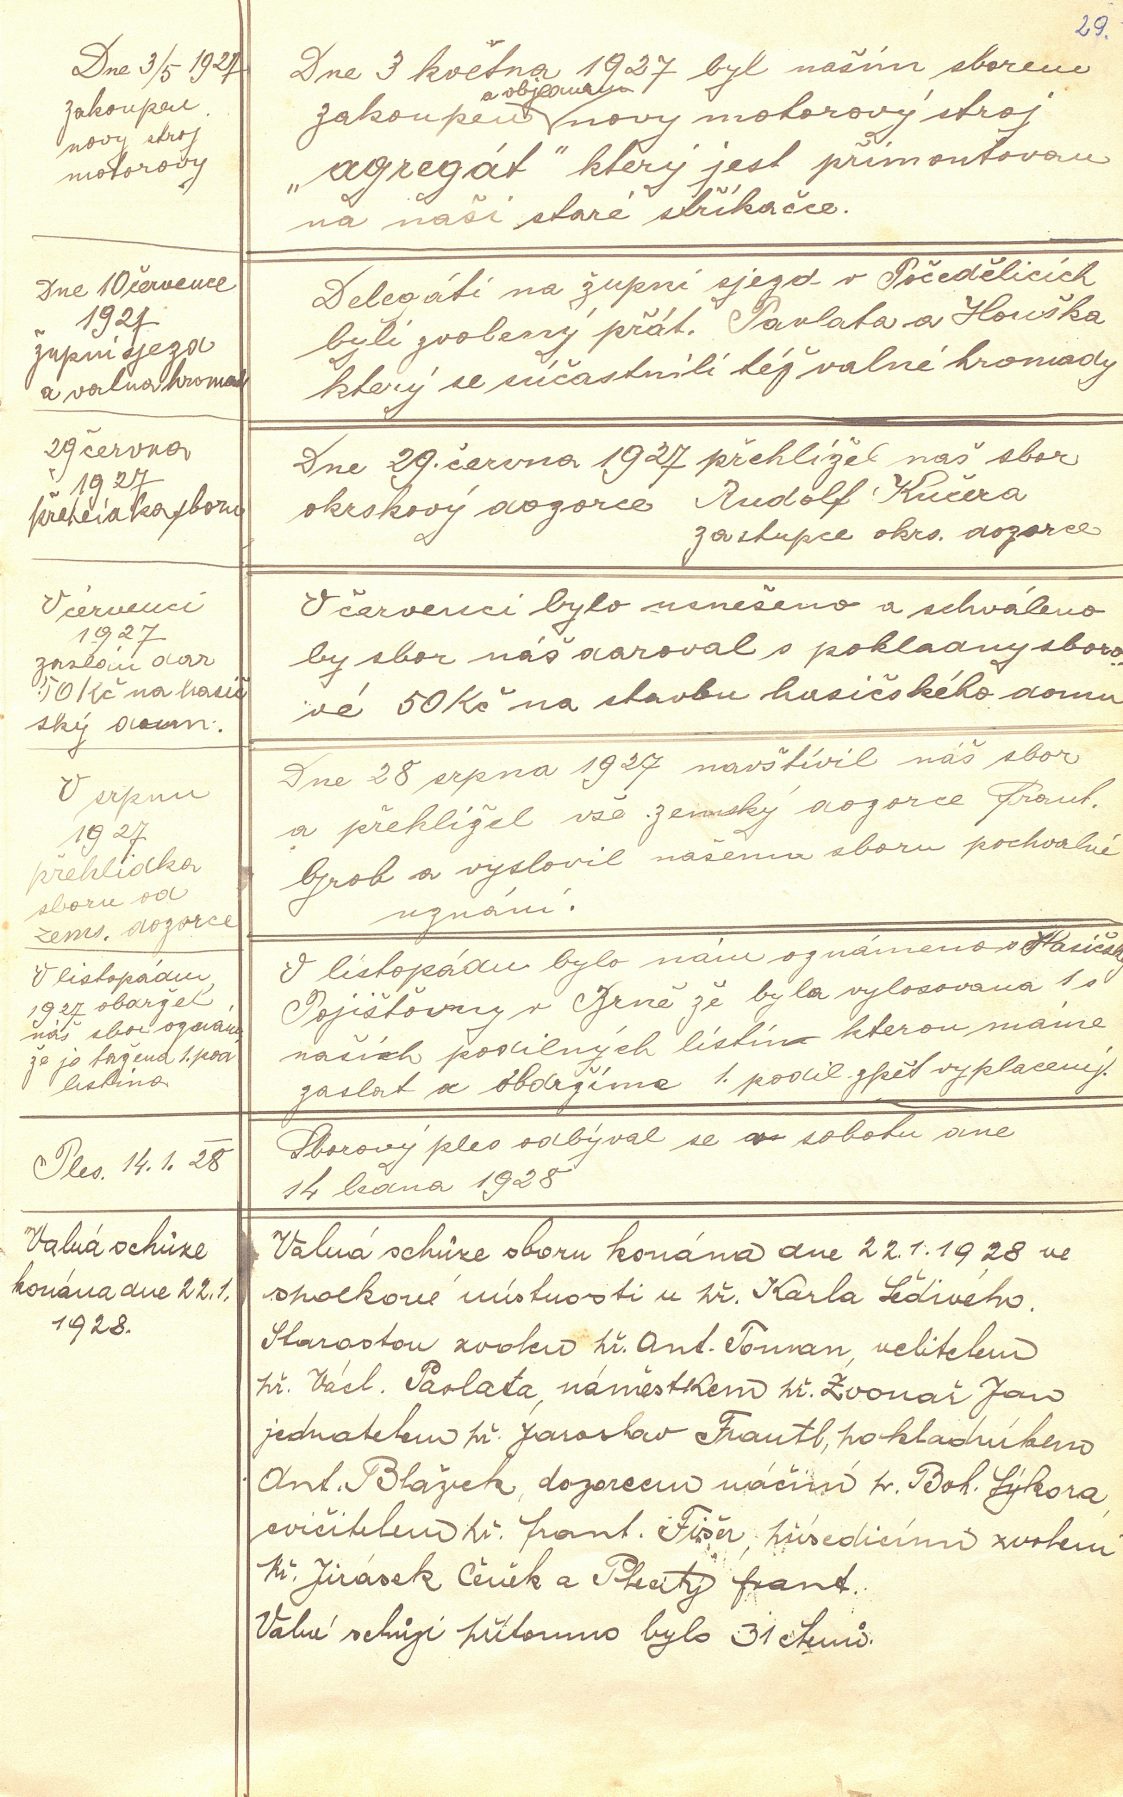 29.
Dne 3/5 1927
zakoupen
nový stroj
motorový
Dne 3 května 1927 byl naším sborem
a objednán
zakoupen nový motorový stroj
„agregát" který jest přimontován
na naši staré stříkačce.
Dne 10 července
1927
župní sjezd
a valna hromad
Delegáti na župní sjezd v Počedělicích
byli zvolený přát. Pavlata a Houška
který se súčastnili též valné hromady
29 června
1927
přehlidka sboru
Dne 29. června 1927 přehlížel naš sbor
okrskový dozorce Rudolf Kučera
zastupce okrs. dozorce
V červenci
1927
zaslán dar
50 Kč na hasič
ský dum.
V červenci bylo usnešeno a schváleno
by sbor náš daroval s pokladny sboro
vé 50 Kč na stavbu hasičského domu
V srpnu
1927
přehlidka
sboru od
zems. dozorce
Dne 28 srpna 1927 navštívil náš sbor
a přehlížel vše zemský dozorce Frant.
Grob a vyslovil našemu sboru pochvalné
uznání.
V listopádu
1927 obdržel
náš sbor oznám
že je tažena 1. pod
listina
V listopádu bylo nám oznámeno v Hasičsky
Pojišťovny v Brně že byla vylosovana 1 s
našich podilných listin kterou máme
zaslat a obdržíme 1. podil zpět vyplacený.
Ples. 14. 1. 28
Sborový ples odbýval se v sobotu dne
14 ledna 1928
Valná schůze
konána dne 22.1.
1928.
Valná schůze sboru konána dne 22.1.1928 ve
spolkové místnosti u bř. Karla Šedivého.
Starostou zvolen bř. Ant. Toman, velitelem
bř. Václ. Pavlata, náměstkem bř. Zvonař Jan
jednatelem bř. Jaroslav Frantl, pokladníkem
Ant. Blažek, dozorcem náčiní br. Boh. Sýkora,
cvičitelem bř. frant. Fišer, přísedícími zvoleni
bř. Jirásek Čeněk a frant.
Valné schůzi přítomno bylo 31 členů.